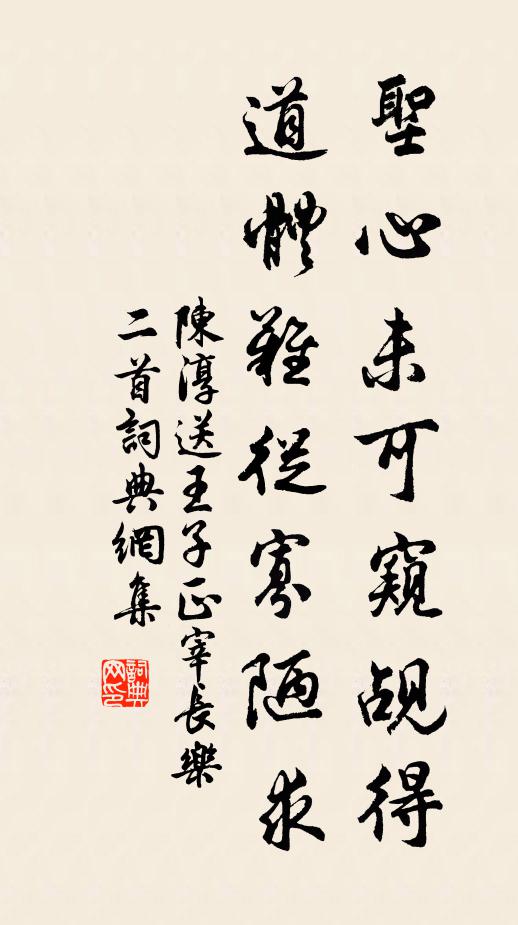 聖心未可窺觇得
道體難從寡陋求
陳淳送王子正宰長樂
二首詞典網集
詞典网印